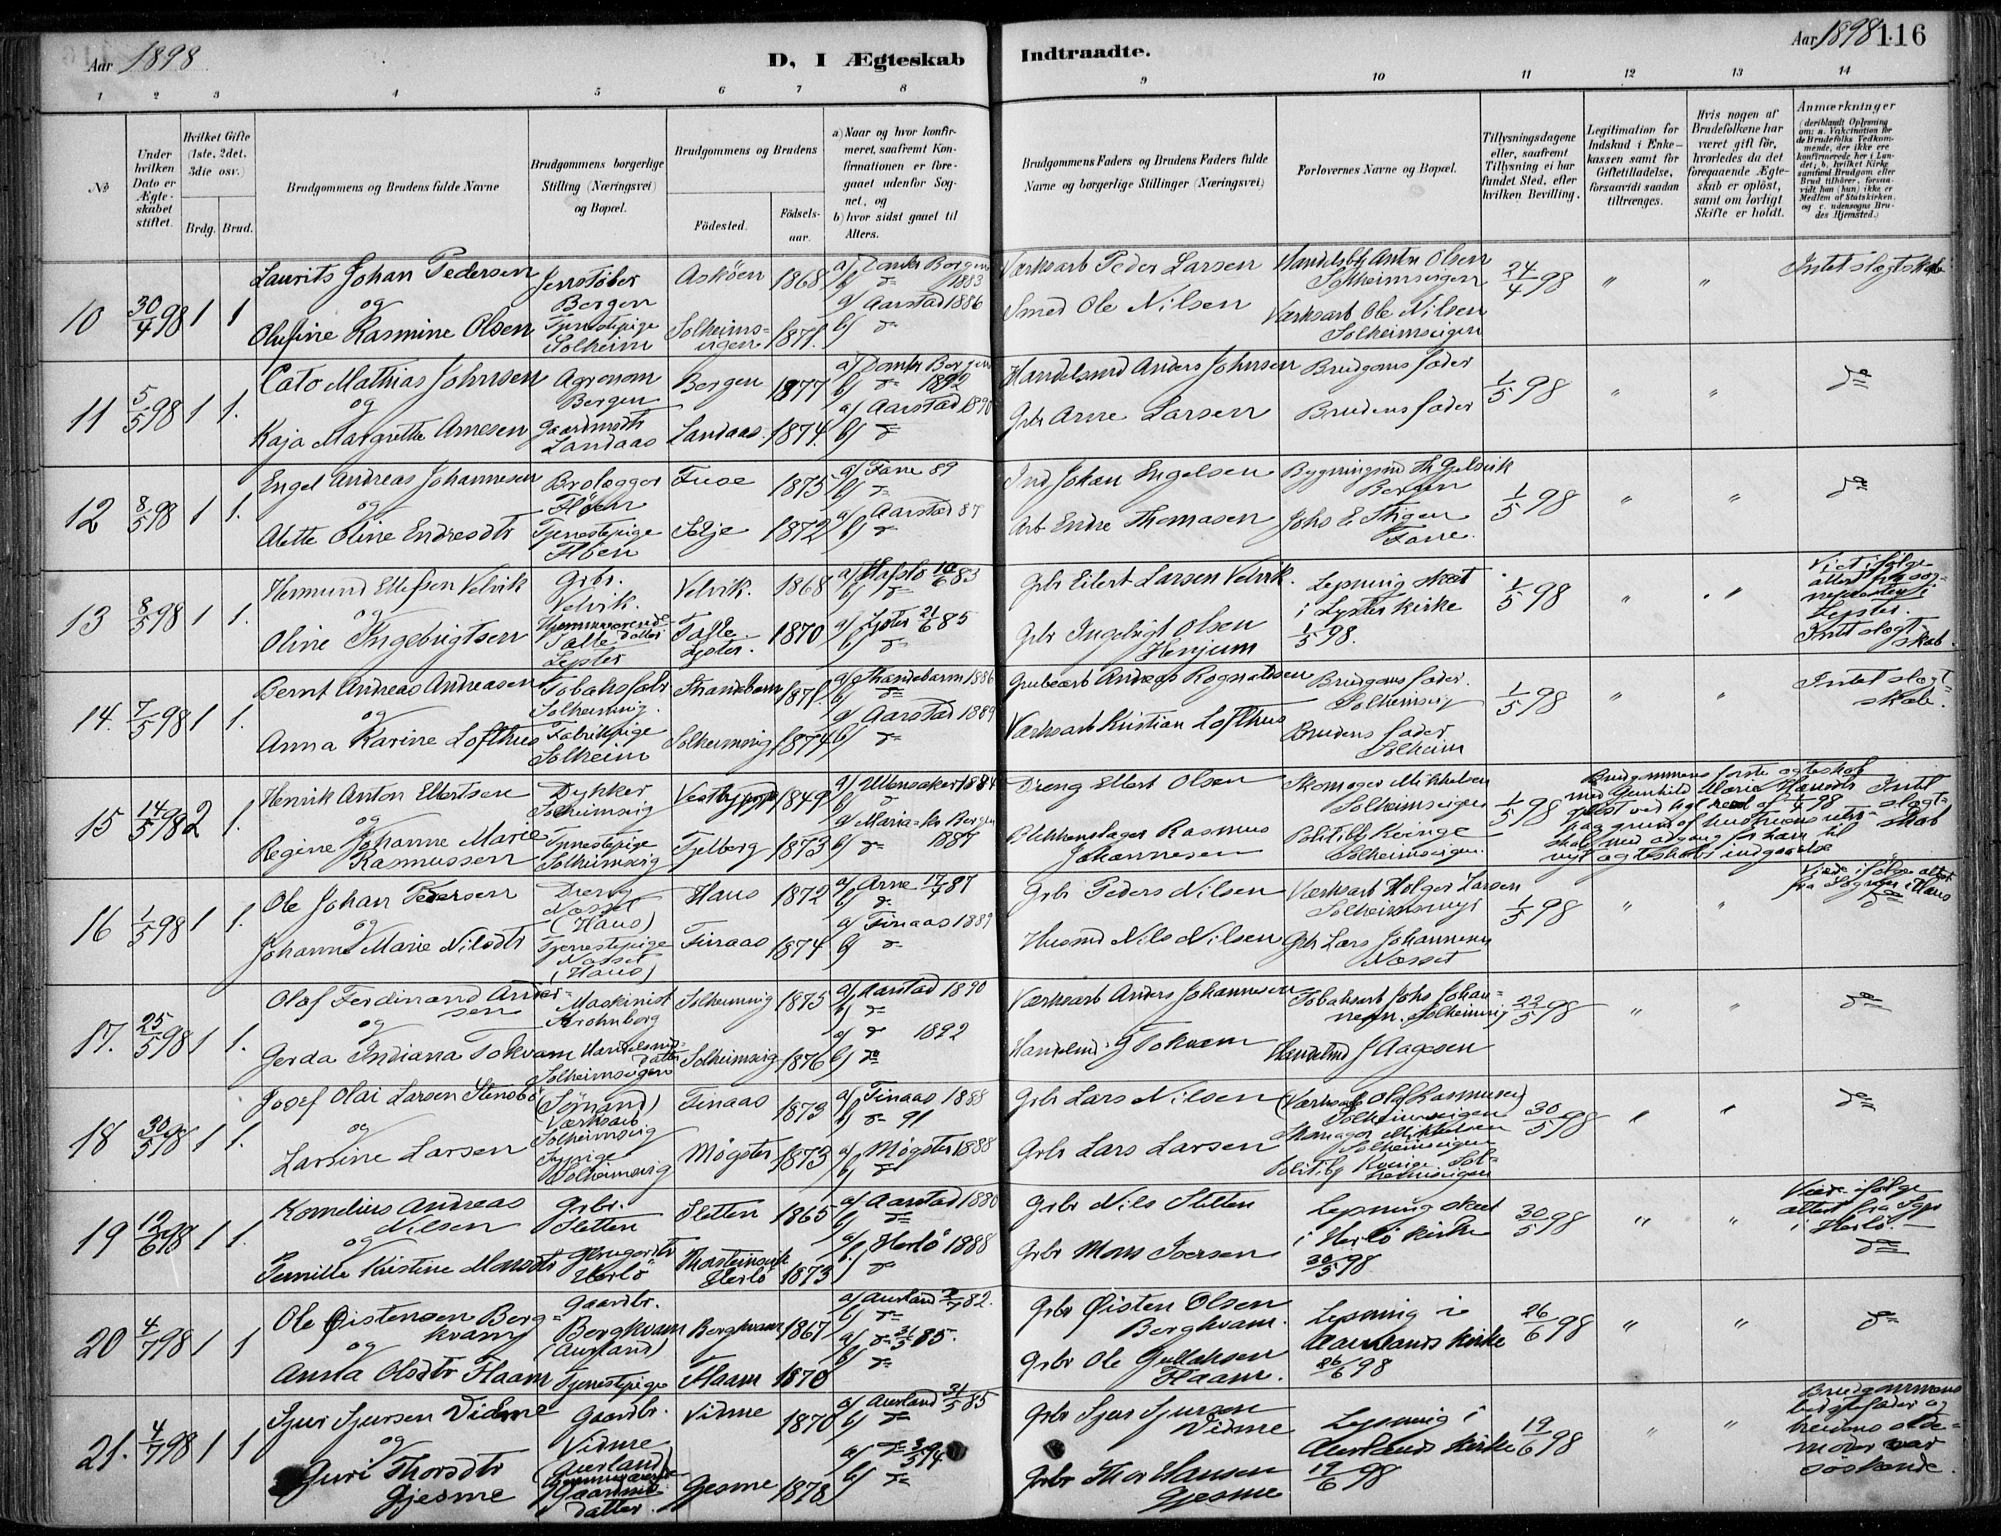 Aar 1898
D, I Ægteskab Indtraadte.
Aar 1898. 116
1 2 3 4 5 6 7 8 9 10 11 12 13 14
No
Under hvilken Dato er Ægteskabet stiftet.
Hvilket Gifte (1ste, 2det, 3die osv.)
Brdg. Brud.
Brudgommens og Brudens fulde Navne
Brudgommens borgerlige Stilling (Næringsvei) og Bopæl.
Brudgommens og Brudens
Fødested.
Fødselsaar.
a) Naar og hvor konfirmeret, saafremt Konfirmationen er foregaaet udenfor Sognet, og
b) hvor sidst gaaet til Alters.
Brudgommens Faders og Brudens Faders fulde Navne og borgerlige Stillinger (Næringsvei)
Forlovernes Navne og Bopæl.
Tillysningsdagene eller, saafremt Tillysning ei har fundet Sted, efter hvilken Bevilling.
Legitimation for Indskud i Enkekassen samt for Giftetilladelse, forsaavidt saadan tiltrænges.
Hvis nogen af Brudefolkene har været gift før, hvorledes da det foregaaende Ægteskab er opløst, samt om lovligt Skifte er holdt.
Anmærkninger
(deriblandt Oplysning om: a. Vakcination for de Brudefolks Vedkommende, der ikke ere konfirmerede her i Landet; b. hvilket Kirkesamfund Brudgom eller Brud tilhører, forsaavidt han (hun) ikke er Medlem af Statskirken, og c. udensogns Brudes Hjemsted.)
10 30/4 98 1 1
Laurits Johan Pedersen
og
Olufine Rasmine Olsen
Jernstøber
Bergen
Tjenestepige
Solheim
Askøen 1868
Solheimsvigen 1871.
a) Domk Bergen
b) d° 1883
a) Aarstad 1886
b) d°
Værksarb Peder Larsen
Smed Ole Nilsen
Handelsbf Anton Olsen
Solheimsvigen
Værksarb Ole Nilsen
Solheimsvigen
24/4 98 " "
Intet slægtskab
11 5/5 98 1 1.
Cato Mathias Johnsen
og
Kaja Margrethe Arnesen
Agronom
Bergen
Gaardmdtr
Landaas
Bergen 1877
Landaas 1874.
a) Domk Bergen
b) d° 1892
a) Aarstad 1890
b) d°
Handelsmd Anders Johnsen
Grbr Arne Larsen
Brudgoms fader
Brudens fader
1/5 98 " "
d°
12 8/5 98 1 1.
Engel Andreas Johannesen
og
Alette Oline Endresdtr
Brolægger
Fløen
Tjenestepige
Fløen
Fuse 1875
Solje 1872
a) Fane 89
b) d°
a) Aarstad 87
b) d°
Ind Johan Engelsen
Arb Endre Thomasen
Bygningsmd Th Gjelsvik
Bergen
Johs E Stigen
Fane.
1/5 98 " "
d°
13 8/5 98 1 1.
Hermund Ellefsen Velvik
og
Oline Ingebrigtsen
Grbr.
Velvik.
Hjemmeværende
datter
Lyster
Velvik. 1868
Lyster. 1870
a) Hafslo 10/6 83
b) d°
a) Lyster 21/6 85
b) d°
Grbr Eilert Larsen Velvik.
Grbr Ingebrigt Olsen
Henjum
Lysning sket
i Lyster kirke
1/5 98.
1/5 98 " "
Viet ifølge
attest fra sognepresten i
Lyster.
Intet slægtskab.
14. 7/5 98 1 1.
Bernt Andreas Andreasen
og
Anna Karine Lofthus
Tobaksfabr
Solheimsvig.
Fabrikpige
Solheim
Strandebarm 1871.
Solheimsvig 1874
a) Strandebarm 1886
b) d°
a) Aarstad 1889
b) d°
Grubearb Andreas Rognaldsen
Værksarb Kristian Lofthus
Brudgoms fader.
Solheimsvig
Brudens fader
Solheim
1/5 98 " "
Intet slægtskab.
15 14/5 98 2 1.
Henrik Anton Ellertsen
og
Regine Johanne Marie
Rasmussen
Dykker
Solheimsvig
Tjenestepige
Solheimsvig
1849
Fjelberg 1873
a) Ullensaker 1884
b) d°
a) Maria-k Bergen
b) d° 1887
Dreng Ellert Olsen
Blikkenslager Rasmus
Johannesen
Skomager Mikkelsen
Solheimsvigen
Politibtj Kvinge
Solheimsvigen.
1/5 98
Brudgommens første ægteskab
med Gunhild Marie Hansdtr
opløst ved kgl resol af 1/4 98
paa grund af hustruens utroskab med adgang for ham til
nyt ægteskabs indgaaelse
Intet slægtskab
16 1/5 98 1 1.
Ole Johan Pedersen
og
Johanne Marie Nilsdtr
Dreng
Næsset
(Haus)
Tjenestepige
Næsset
(Haus)
Haus 1872
Finaas 1874
a) Arne 17/4 87
b) d°
a) Finaas 1889
b) d°
Grbr Peders Nilsen
Husmd Nils Nilsen
Værksarb Holger Larsen
Solheimsvigs
Grbr Lars Johannesen
Næsset
1/5 98 " "
Viede ifølge attest
fra Sognepr i Haus
d°
17. 25/5 98 1 1.
Olaf Ferdinand Andersen
og
Gerda Indiana Tokvam
Maskinist
Kronborg
Handelsmdsdatter
Solheimsvigen
Solheimsvig 1875
Solheimsvig 1876
a) Aarstad 1890
b) d°
a) d° 1892
b) d°
Værksarb Anders Johannesen
Handelsmd G Tokvam
Tobaksarb Johs Johannesen. Solheimsvig
Handelsmd J Aagesen
22/5 98 " "
d°
18 30/5 98 1 1.
Josef Olai Larsen Stensbø
og
Larsine Larsen
(Sømand)
Værksarb
Solheimsvig
Tjpige
Solheimsvig
Finaas 1873
Møgster 1873
a) Finaas 1888
b) d° 91
a) Møgster 1888
b) d°
Grbr Lars Nilsen
Grbr Lars Larsen
(Værksarb Olaf Rasmussen)
Solheimsvigen
Skomager Mikkelsen
Solheimsvigen
Politibtj Kvinge Solheimsvigen
30/5 98 " "
d°
19 12/6 98 1 1.
Kornelius Andreas
Nilsen
og
Pernille Kristine Monsdtr
Grbr.
Sletten
Herlø
Sletten 1865
Herlø 1873
a) Aarstad 1880
b) d°
a) Herlø 1888
b) d°
Grbr Nils Sletten
Grbr Mons Iversen
Lysning sket
i Herlø kirke
30/5 98
30/5 98 " "
Viede ifølge
attest fra Sgpr
i Herlø.
d°
20 4/7 98 1 1
Ole Øistensen Bergkvam
og
Anna Olsdtr Flaam
Gaardbr.
Bergkvam
(Aurland)
Tjenestepige
Bergkvam 1867
Flaam 1870
a) Aurland 2/7 82.
b) d°
a) d° 31/5 85.
b) d°
Grbr Øisten Olsen
Bergkvam.
Grbr Ole Gullaksen
Flaam.
Lysning i
Aurlands kirke
26/6 98
26/6 98 " "
d°
21. 4/7 98 1 1
Sjur Sjursen Vidme
og
Guri Thorsdtr
Gjesme
Gaardbr.
Vidme
(Aurland)
Hjemmeværende
Gaardmd.
datter.
Vidme 1870
Gjesme 1878
a) Aurland 31/5 85
b) d°
a) d° 3/5 94
b) d°
Grbr Sjur Sjursen
Vidme
Grbr Thor Hansen
Gjesme
Lysning i
Aurlands kirke
19/6 98
19/6 98 " "
Brudgommens
bedstefader og
brudens oldemoder var
søskende.